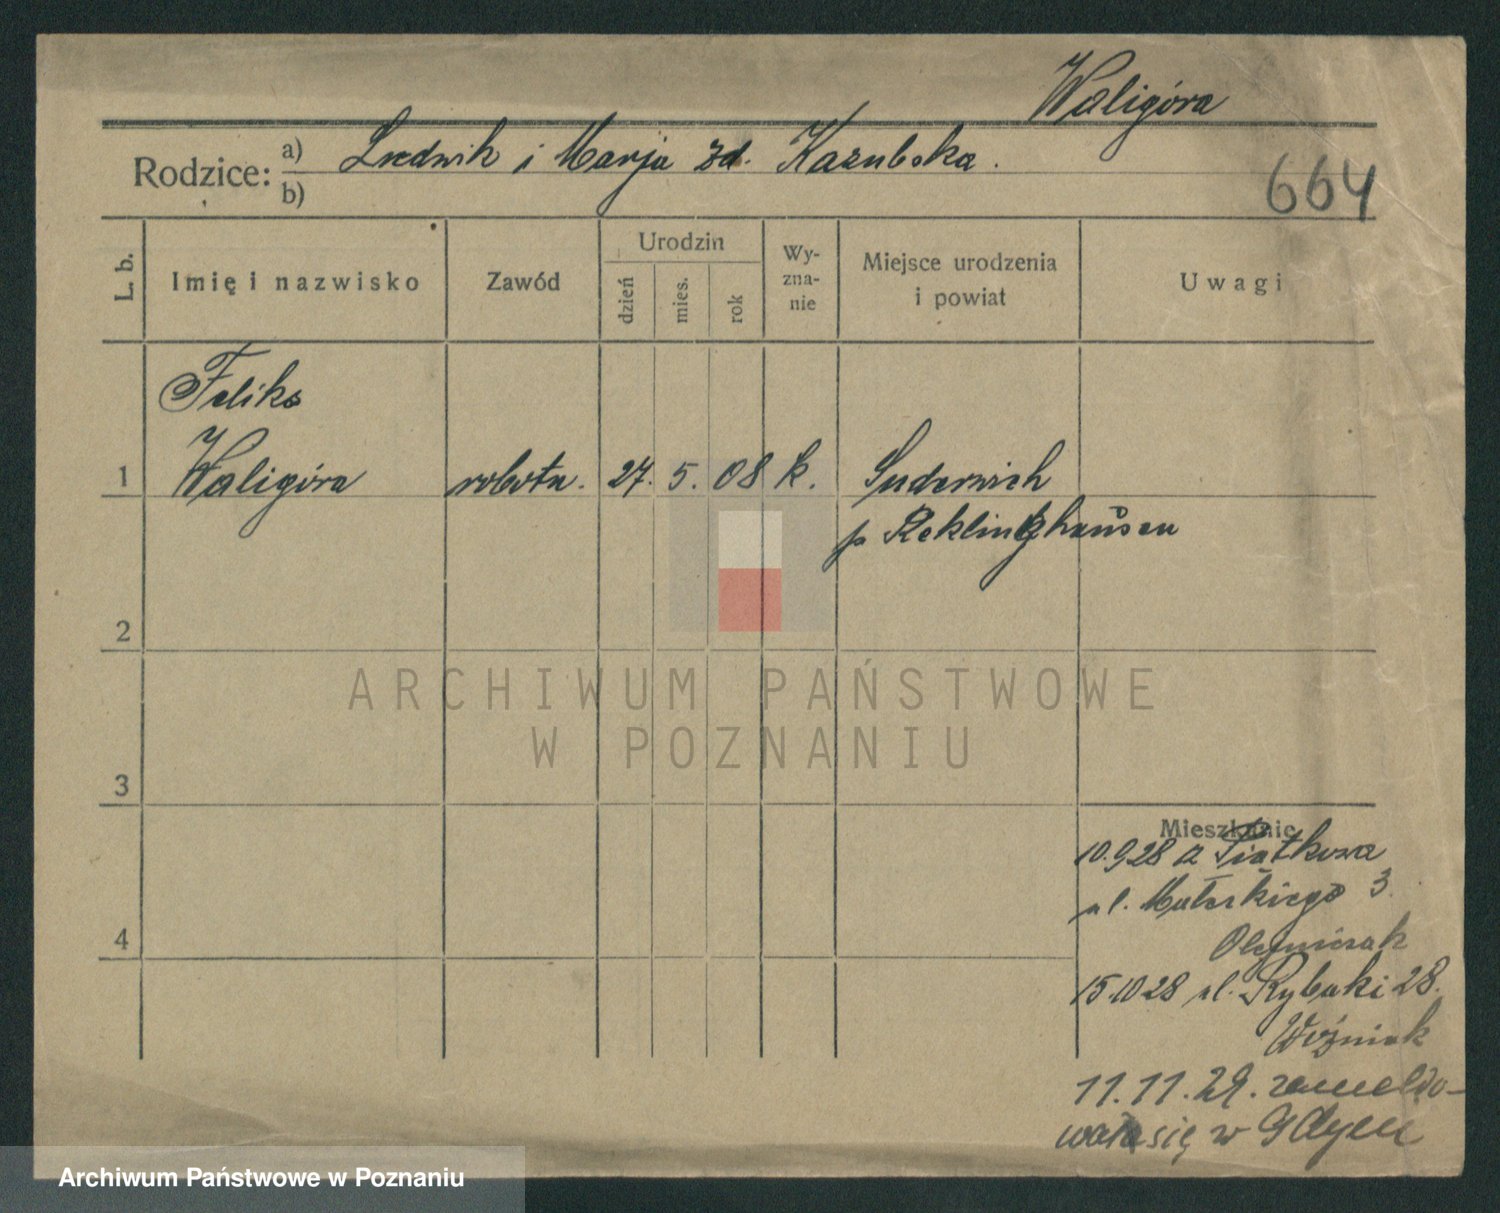 Waligóra
Rodzice: a) Ludwik i Marja zd. Kazubska.
b)
664
L. b.
Imię i nazwisko
Zawód
Urodzin
dzień
mies.
rok
Wy-
zna-
nie
Miejsce urodzenia
i powiat
Uwagi
Feliks
1 Waligóra robotn. 27. 5. 08 k. Suderwich
p Reklinghausen
2
ARCHIWUM PAŃSTWOWE
W POZNANIU
3
Mieszkanie
10.9.28 z Piątkowa
ul. Małeckiego 3.
Olejniczak
4
15.10 28 ul. Rybaki 28.
Woźniak
11.11.29. zameldo-
wała się w Gdyni
Archiwum Państwowe w Poznaniu